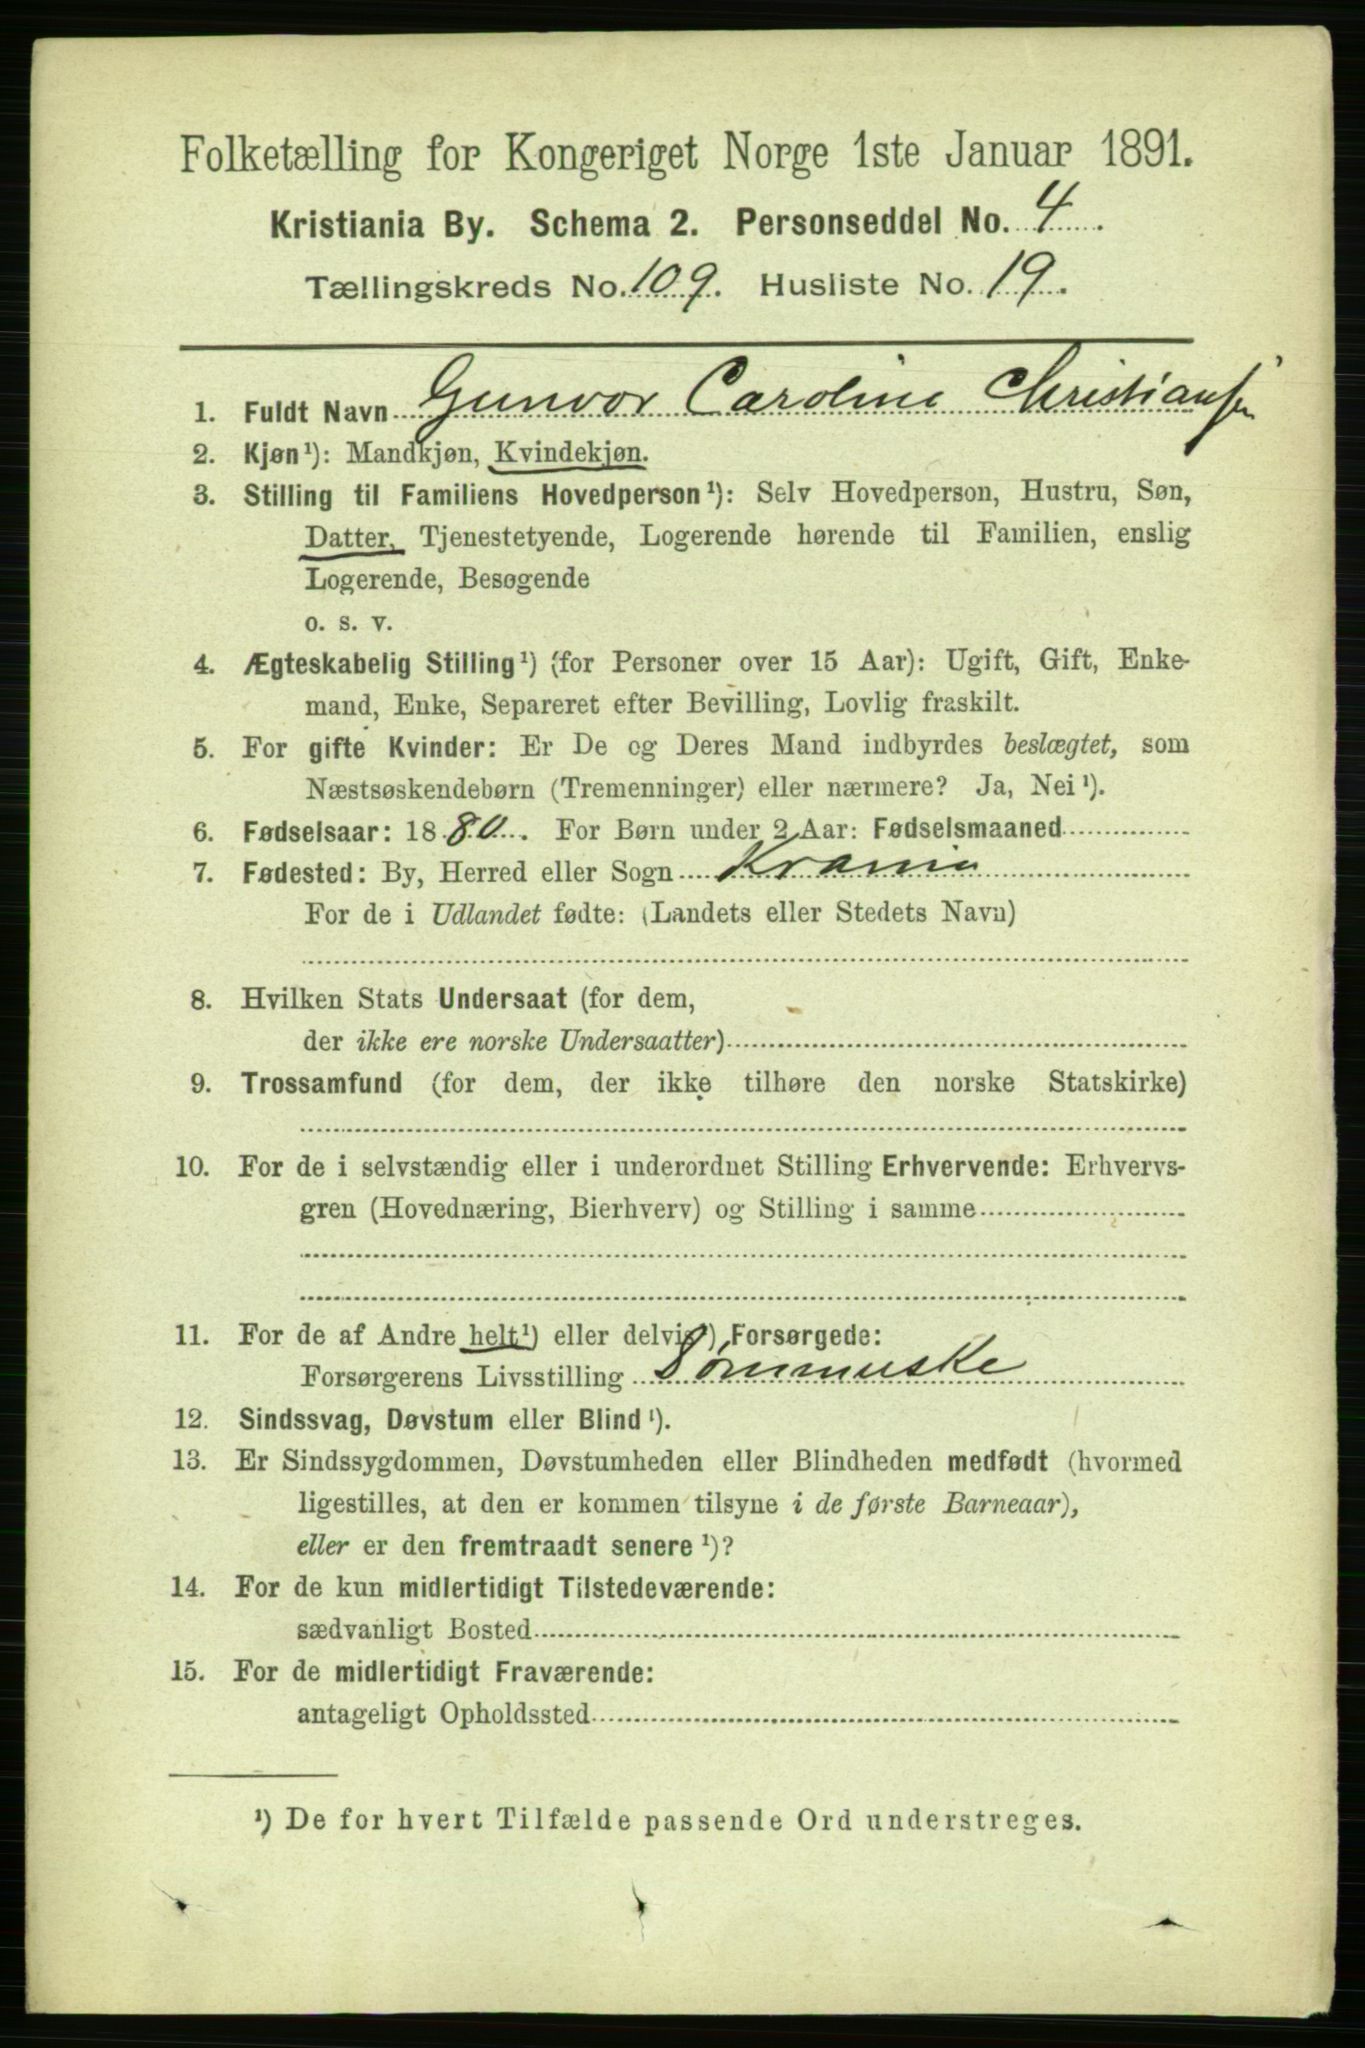 Folketælling for Kongeriget Norge 1ste Januar 1891.
Kristiania By. Schema 2. Personseddel No. 4.
Tællingskreds No. 109. Husliste No. 19.
1. Fuldt Navn Gunvor Caroline Christiansen
2. Kjøn¹): Mandkjøn, Kvindekjøn.
3. Stilling til Familiens Hovedperson¹): Selv Hovedperson, Hustru, Søn,
Datter, Tjenestetyende, Logerende hørende til Familien, enslig
Logerende, Besøgende
o. s. v.
4. Ægteskabelig Stilling¹) (for Personer over 15 Aar): Ugift, Gift, Enke-
mand, Enke, Separeret efter Bevilling, Lovlig fraskilt.
5. For gifte Kvinder: Er De og Deres Mand indbyrdes beslægtet, som
Næstsøskendebørn (Tremenninger) eller nærmere? Ja, Nei¹).
6. Fødselsaar: 1880. For Børn under 2 Aar: Fødselsmaaned
7. Fødested: By, Herred eller Sogn Krania
For de i Udlandet fødte: (Landets eller Stedets Navn)
8. Hvilken Stats Undersaat (for dem,
der ikke ere norske Undersaatter)
9. Trossamfund (for dem, der ikke tilhøre den norske Statskirke)
10. For de i selvstændig eller i underordnet Stilling Erhvervende: Erhvervs-
gren (Hovednæring, Bierhverv) og Stilling i samme
11. For de af Andre helt¹) eller delvis¹) Forsørgede:
Forsørgerens Livsstilling Sømmerske
12. Sindssvag, Døvstum eller Blind¹).
13. Er Sindssygdommen, Døvstumheden eller Blindheden medfødt (hvormed
ligestilles, at den er kommen tilsyne i de første Barneaar),
eller er den fremtraadt senere¹)?
14. For de kun midlertidigt Tilstedeværende:
sædvanligt Bosted
15. For de midlertidigt Fraværende:
antageligt Opholdssted
¹) De for hvert Tilfælde passende Ord understreges.